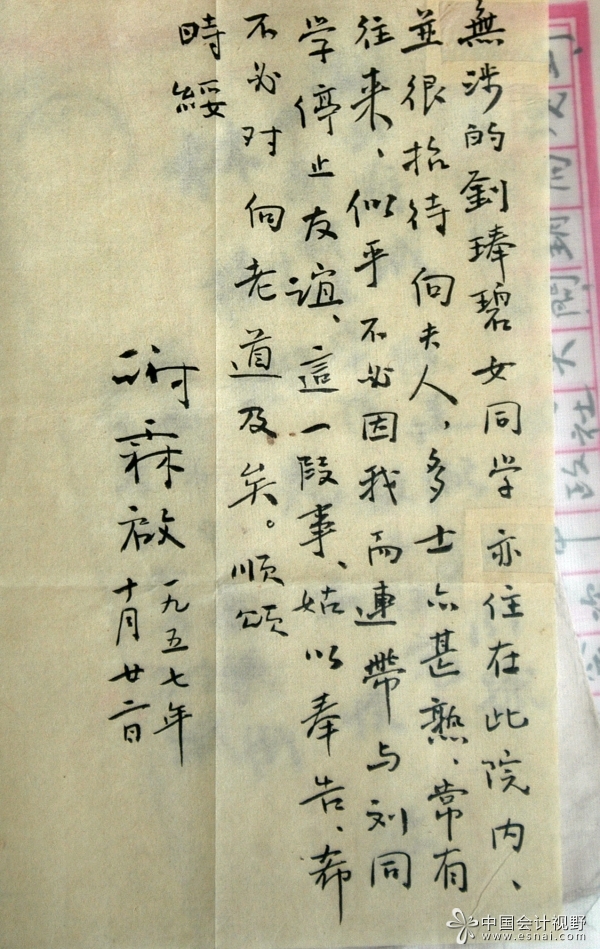 無涉的劉琫碧女同学亦住在此院内、
並很招待向夫人，多士亦甚熟、常有
往来、似乎不必因我而連帶与刘同
学停止友谊、這一段事、姑以奉告、希
不必对向老道及矣。順頌
時綏
谢霖啟
一九五七年
十月廿二日
中国会计视野
www.esnai.com